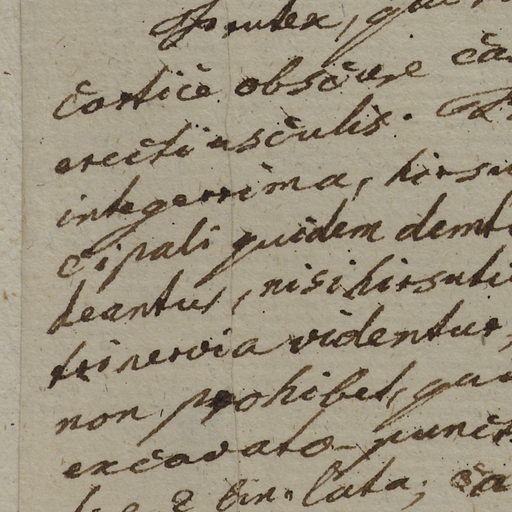 Frutex, qui
cortice obscure ca
erectiusculis.
integerrima, hirsu
cipali quidem demt
deantur, nisi hirsuti
trinervia videntur,
non prohibet, qu
excavato-punct
2 lin. lata; ca